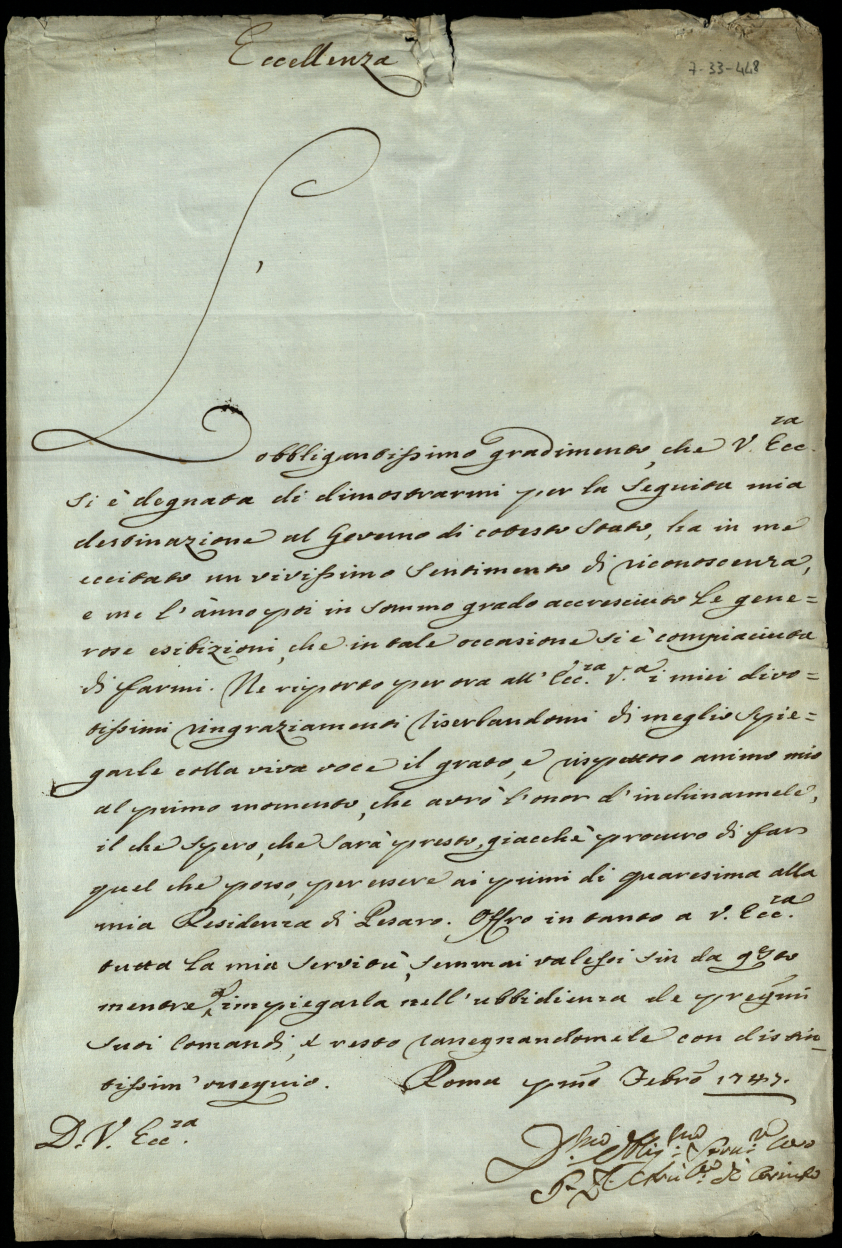 Eccellenza
7-33-448
L'obbligantissimo gradimento, che V. Ecc.za
si è degnata di dimostrarmi per la seguita mia
destinazione al Governo di cotesto Stato, ha in me
eccitato un vivissimo sentimento di riconoscenza,
e me l'ànno poi in sommo grado accresciuto le gene=
rose esibizioni, che in tale occasione si è compiaciuta
di farmi. Ne riporto per ora all'Ecc.za V.a i miei divo=
tissimi ringraziamenti riserbandomi di meglio spie=
garle colla viva voce il grato, e rispettoso animo mio
al primo momento, che avrò l'onor d'inchinarmele,
il che spero, che sarà presto, giacchè procuro di far
quel che posso, per essere ai primi di quaresima alla
mia Residenza di Pesaro. Offro in tanto a V. Ecc.za
tutta la mia servitù, semmai valessi sin da q.sto
mentre impiegarla nell'ubbidienza de pregmi
suoi Comandi, e resto rassegnandomele con distin=
tissim' ossequio. Roma pmo Febro 1747.
D. V. Ecc.za